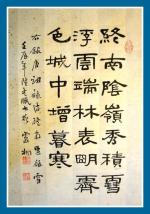 終南陰嶺秀積雪
浮雲端林表朙霽
色城中增暮寒
右錄唐祖詠詩終南望餘雪